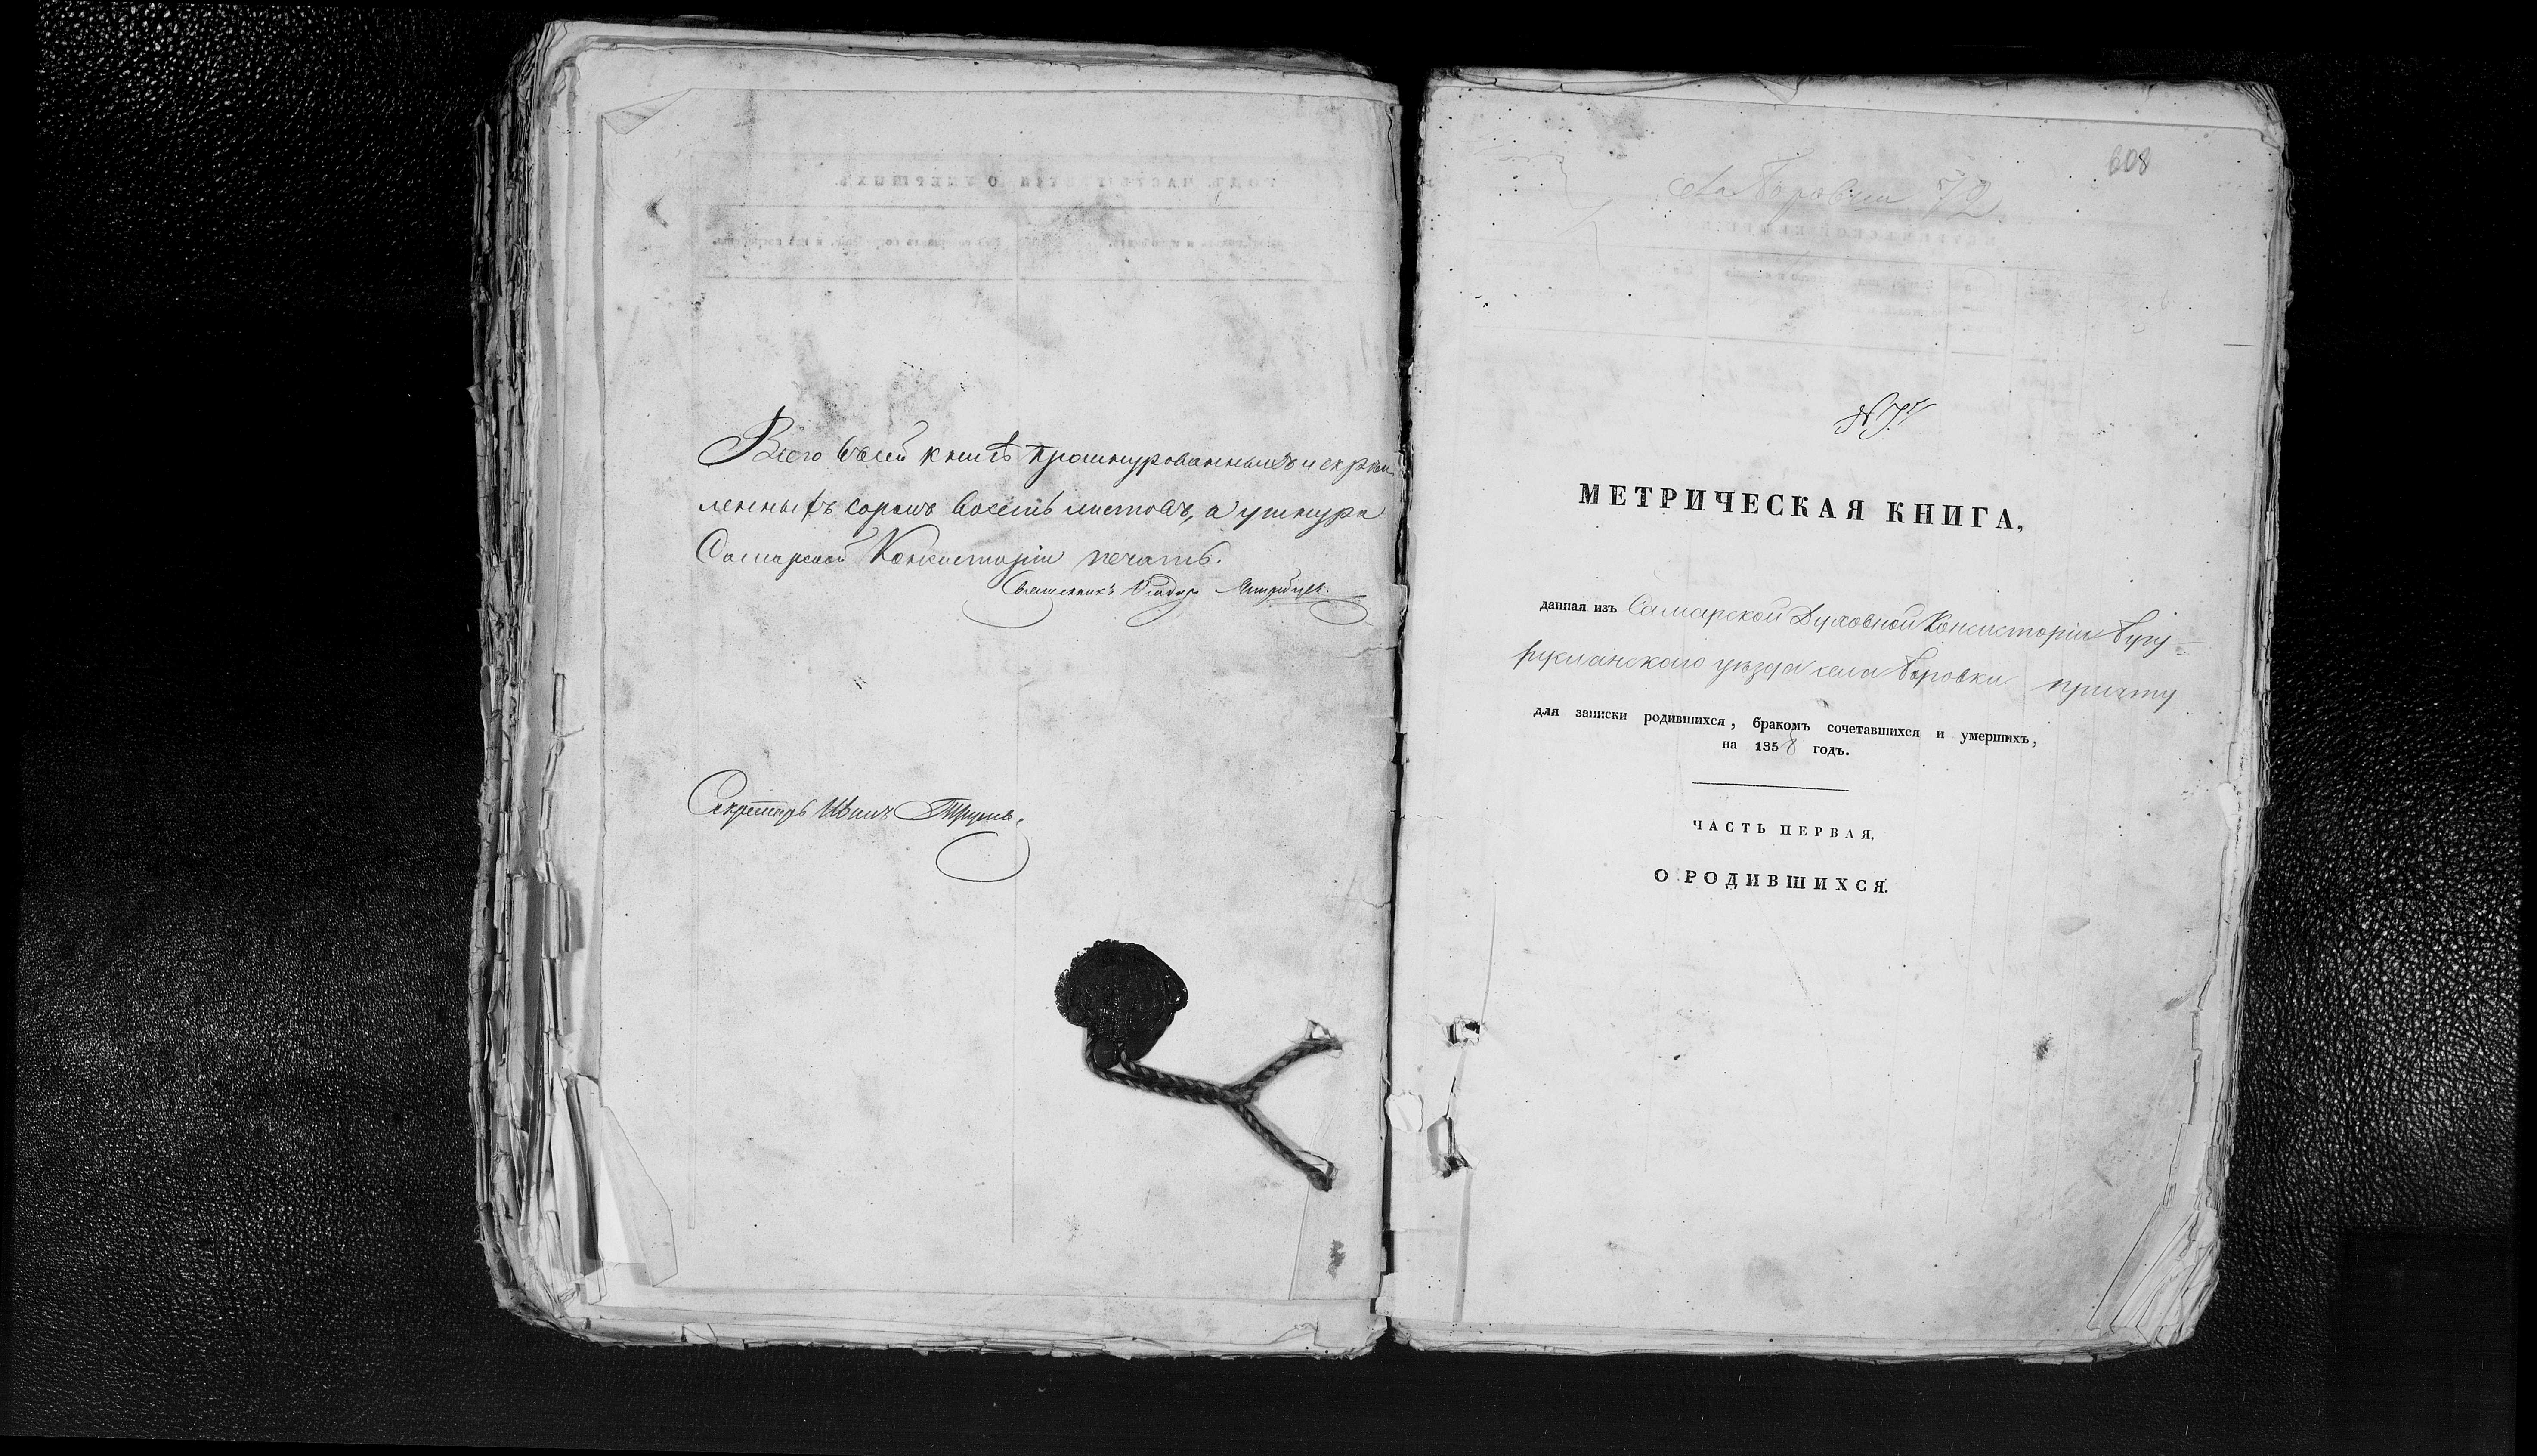 Всего въ сей книгѣ прошнурованныхъ и скрѣп-
ленныхъ сорокъ восемь листовъ, а у шнура
Самарской Консисторіи печать.
Священникъ
Секретарь Иванъ
608
72
МЕТРИЧЕСКАЯ КНИГА,
данная изъ Самарской Духовной Консисторіи Бугу-
русланскаго уѣзда села Боровки причту
для записки родившихся, бракомъ сочетавшихся и умершихъ,
на 1858 годъ.
ЧАСТЬ ПЕРВАЯ,
О РОДИВШИХСЯ.